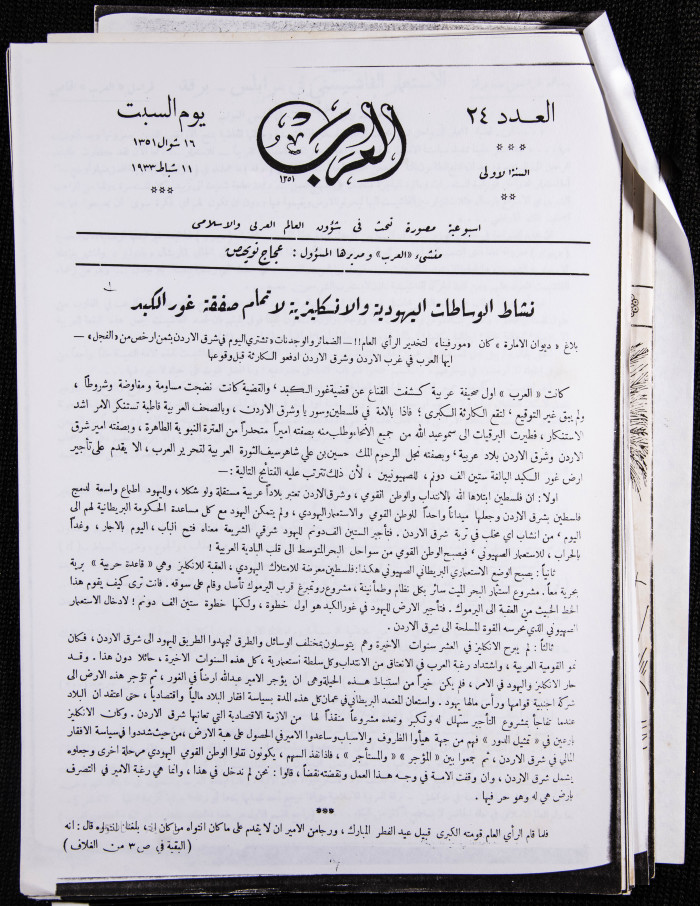 العدد ٢٤
السنة الاولى
العرب
١٣٥١
يوم السبت
١٦ شوال ١٣٥١
١١ شباط ١٩٣٣
اسبوعية مصورة تبحث في شؤون العالم العربي والاسلامي
منشىء «العرب» ومديرها المسؤول : عجاج نويهض
نشاط الوساطات اليهودية والانكليزية لاتمام صفقة غور الكبد
بلاغ «ديوان الامارة» كان «مورفينا» لتخدير الرأي العام!!— الضمائر والوجدانات «تشترى اليوم في شرق الاردن بثمن ارخص من «الفجل» —
ايها العرب في غرب الاردن وشرق الاردن ادفعوا الكارثة قبل وقوعها
كانت «العرب» اول صحيفة عربية كشفت القناع عن قضية غور الكبد ، والقضية كانت نضجت مساومة ومفاوضة وشروطاً ،
ولم يبق غير التوقيع ، لتقع الكارثة الكبرى ؛ فاذا بالامة في فلسطين وسوريا وشرق الاردن ، وبالصحف العربية قاطبة تستنكر الامر اشد
الاستنكار ، فطيرت البرقيات الى سمو عبد الله من جميع الانحاء وطلب منه بصفته اميراً متحدراً من العترة النبوية الطاهرة ، وبصفته امير شرق
الاردن وشرق الاردن بلاد عربية ، وبصفته نجل المرحوم الملك حسين بن علي شاهر سيف الثورة العربية لتحرير العرب ، الا يقدم على تأجير
ارض غور الكبد البالغة ستين الف دونم ، للصهيونيين ، لأن ذلك تترتب عليه الفتائج التالية :—
اولا : ان فلسطين ابتلاها الله بالانتداب والوطن القومي ، وشرق الاردن تعتبر بلاداً عربية مستقلة ولو شكلا ، ولليهود اطماع واسعة لدمج
فلسطين بشرق الاردن وجعلها ميداناً واحداً للوطن القومي والاستعمار اليهودي ، ولم يتمكن اليهود مع كل مساعدة الحكومة البريطانية لهم الى
اليوم ، من انشاب اي مخلب في تربة شرق الاردن . فتأجير الستين الف دونم لليهود شرقي الشريعة معناه فتح الباب ، اليوم بالاجار ، وغداً
بالحراب ، للاستعمار الصهيوني ، فيصبح الوطن القومي من سواحل البحر المتوسط الى قلب البادية العربية !
ثانياً : يصبح الوضع الاستعماري البريطاني الصهيوني هكذا : فلسطين معرضة للامتلاك اليهودي ، العقبة للانكليز وهي «قاعدة حربية» برية
بحرية معاً . مشروع استثمار البحر الميت سائر بكل نظام وطمأنينة ، مشروع روتمبرغ قرب اليرموك تأصل وقام على سوقه . فانت ترى كيف يقوم هذا
الخط الخبيث من العقبة الى اليرموك . فتأجير الارض لليهود في غور الكبد هو اول خطوة ، ولكنها خطوة ستين الف دونم ! لادخال الاستعمار
الصهيوني الذي تحرسه القوة المسلحة الى شرق الاردن .
ثالثاً : لم يبرح الانكليز في العشر سنوات الاخيرة وهم يتوسلون بمختلف الوسائل والطرق ليمهدوا الطريق لليهود الى شرق الاردن ، فكان
نمو القومية العربية ، واشتداد رغبة العرب في الانعتاق من الانتداب وكل سلطة استعمارية ، كل هذه السنوات الاخيرة ، حائلا دون هذا . وقد
حار الانكليز واليهود في الامر ، فلم يكن خيراً من استنباط هذه الحيلة وهي ان يؤجر الامير عبد الله ارضاً في الغور ، ثم تؤجر هذه الارض الى
شركة اجنبية قوامها ورأس مالها يهود . واستعان المعتمد البريطاني في عمان كل هذه المدة بسياسة افقار البلاد مالياً واقتصادياً ، حتى اعتقد ان البلاد
عندما تفاجأ بمشروع التأجير ستهلل له وتكبر وتعده مشروعاً منقذاً لها من الازمة الاقتصادية التي تعانيها شرق الاردن . وكان الانكليز
بارعين في «تمثيل الدور» فهم من جهة هيأوا الظروف والاسباب وساعدوا الامير في الحصول على هبة الارض ، من حيث شددوا في سياسة الافقار
المالي في شرق الاردن ، ثم جمعوا بين «المؤجر» «والمستأجر» ، فاذا نفذ السهم ، يكونون نقلوا الوطن القومي اليهودي مرحلة اخرى وجعلوه
يشمل شرق الاردن ، وان وقفت الامة في وجه هذا العمل ونقضته نقضاً ، قالوا : نحن لم ندخل في هذا ، وانما هي رغبة الامير في التصرف
بارض هي له وهو حر فيها .
فلما قام الرأي العام قومته الكبرى قبيل عيد الفطر المبارك ، ورجا من الامير ان لا يقدم على ما كان انتواه مهما كان قال : انه
(البقية في ص ٣ من الغلاف)